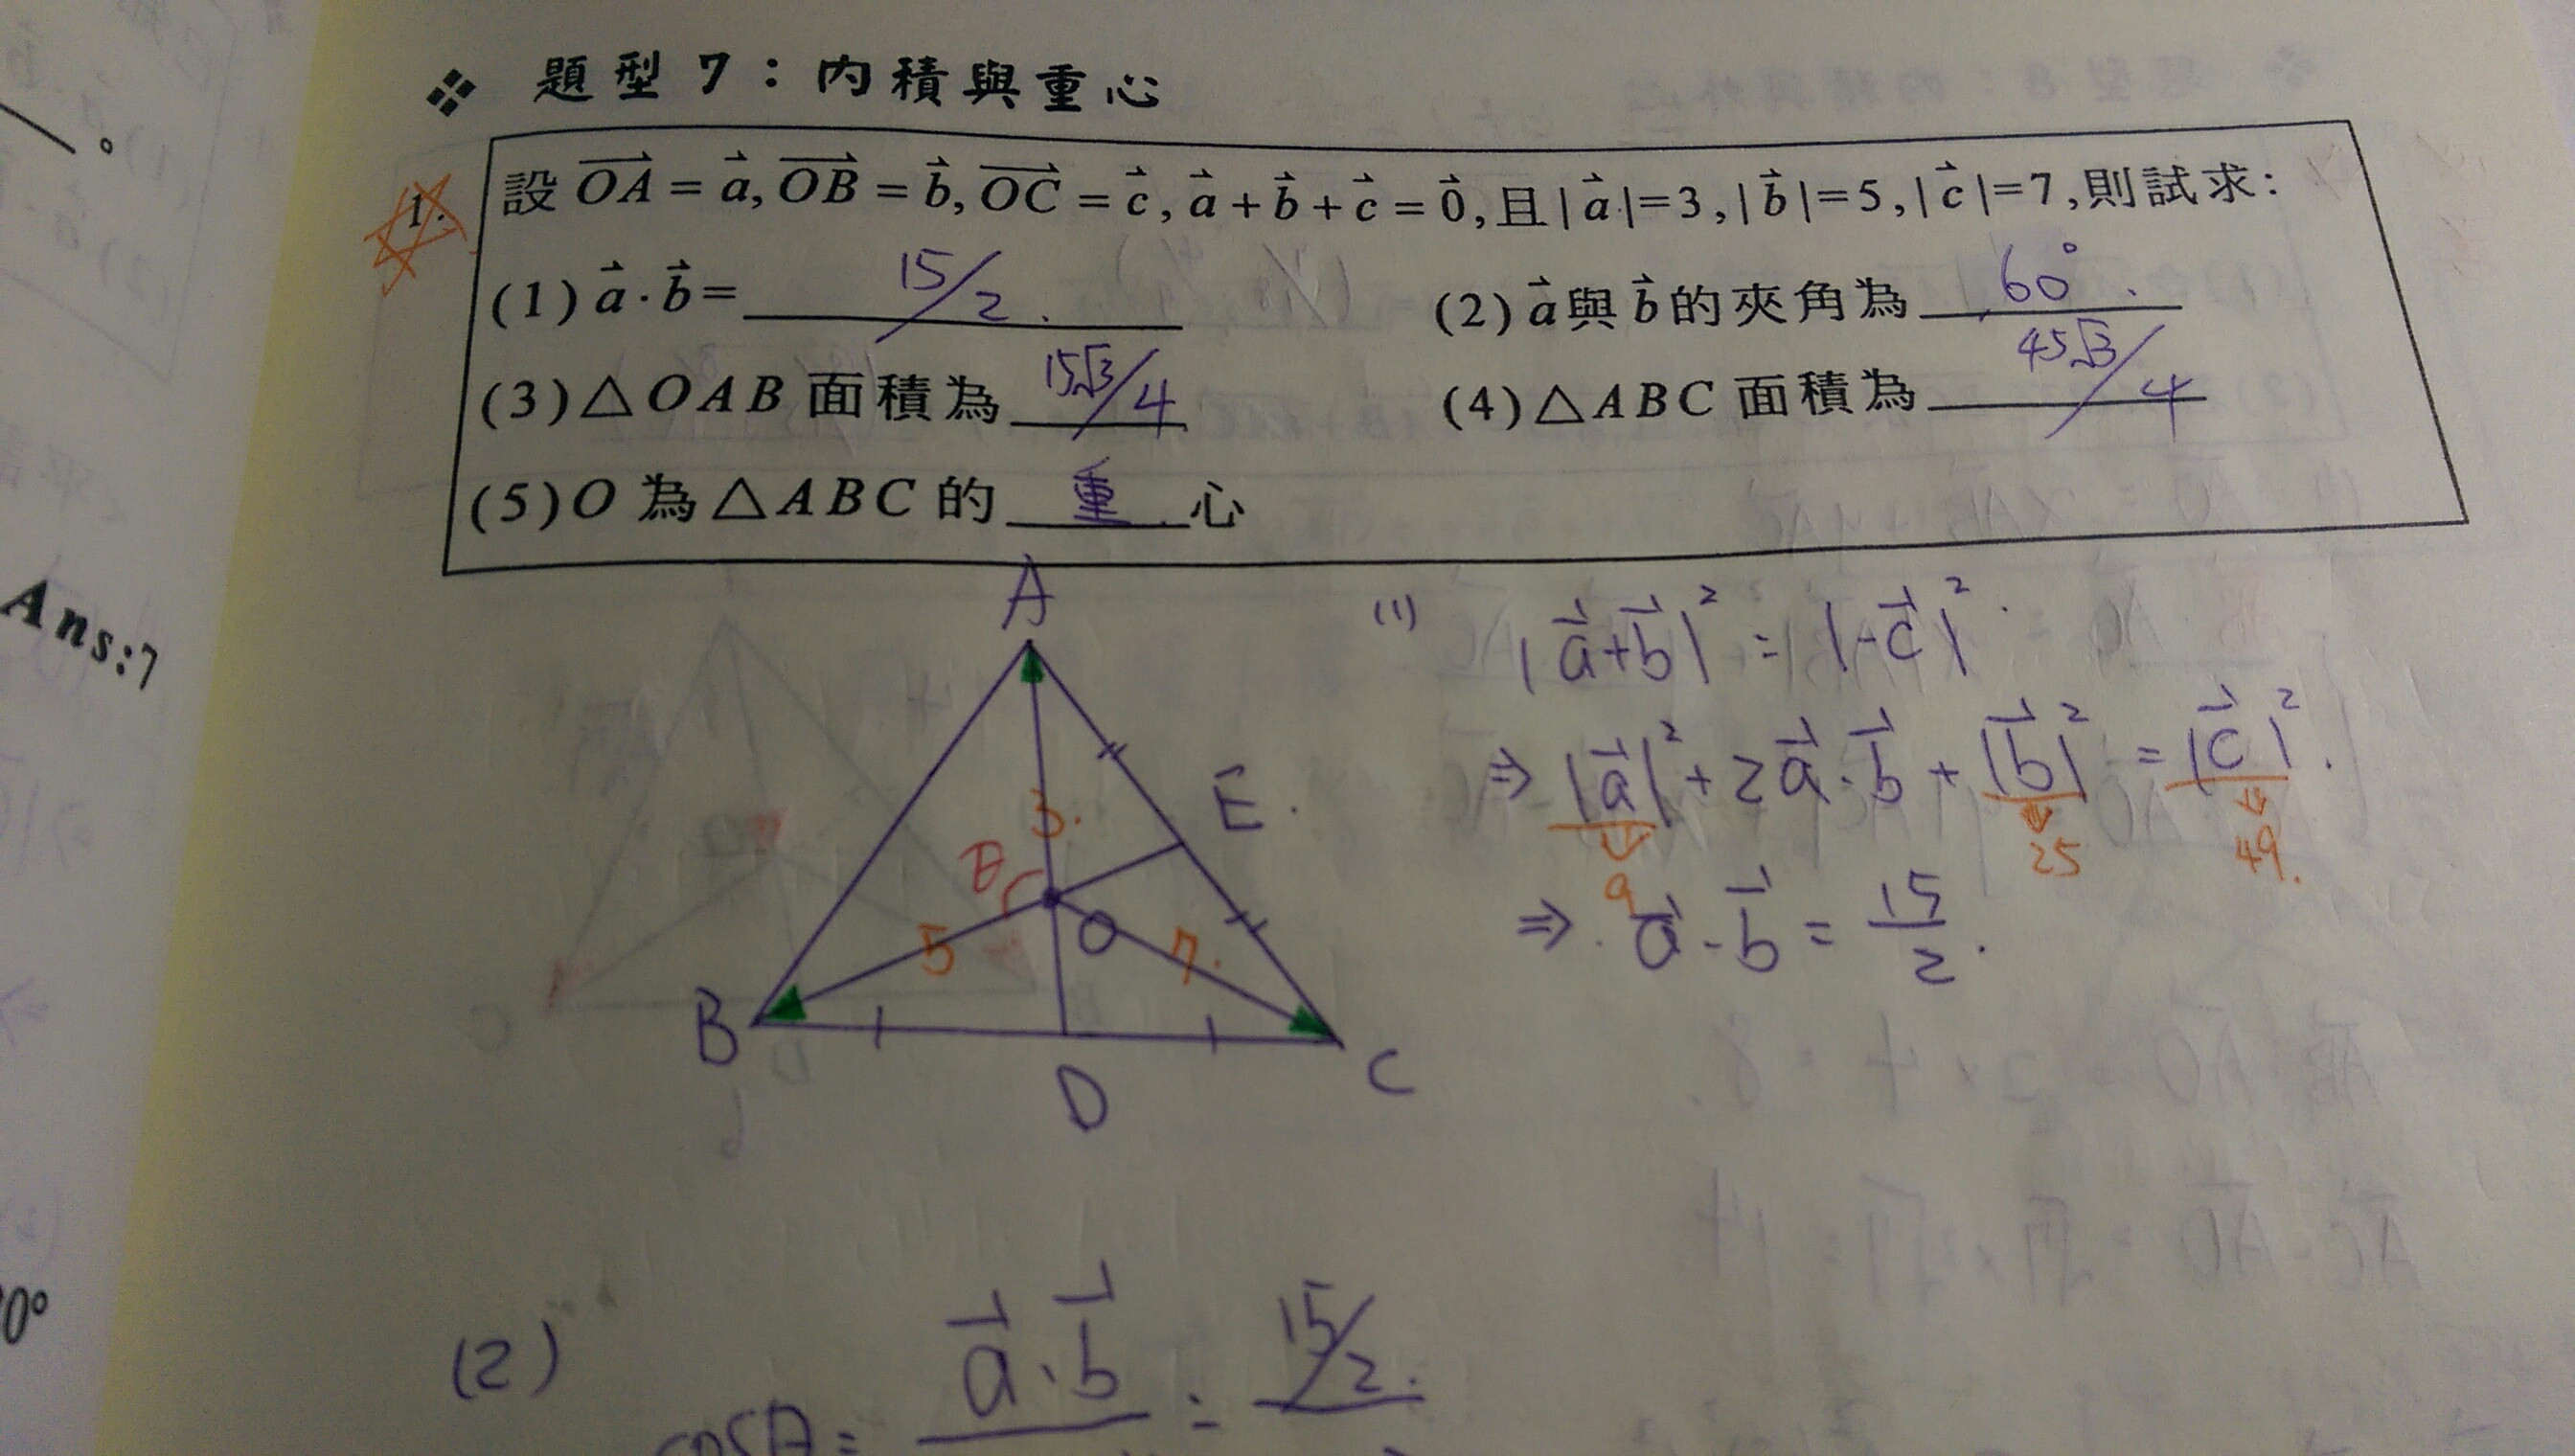 ❖ 題型 7：內積與重心
1. 設 $\overrightarrow{OA} = \vec{a}, \overrightarrow{OB} = \vec{b}, \overrightarrow{OC} = \vec{c}, \vec{a} + \vec{b} + \vec{c} = \vec{0}$, 且 $|\vec{a}|=3, |\vec{b}|=5, |\vec{c}|=7$, 則試求：
(1) $\vec{a} \cdot \vec{b}$ = 15/2. (2) $\vec{a}$ 與 $\vec{b}$ 的夾角為 60°.
(3) △OAB 面積為 15√3/4 (4) △ABC 面積為 45√3/4
(5) O 為 △ABC 的 重 心
Ans:7
A
E.
3.
θ
5
O
7.
B
D
C
(1) $|\vec{a}+\vec{b}|^2 = |-\vec{c}|^2$.
⇒ $|\vec{a}|^2 + 2\vec{a}\cdot\vec{b} + |\vec{b}|^2 = |\vec{c}|^2$.
9 25 49.
⇒. $\vec{a}\cdot\vec{b} = \frac{15}{2}$.
0°
(2) cosθ = $\vec{a}\cdot\vec{b}$ = 15/2.